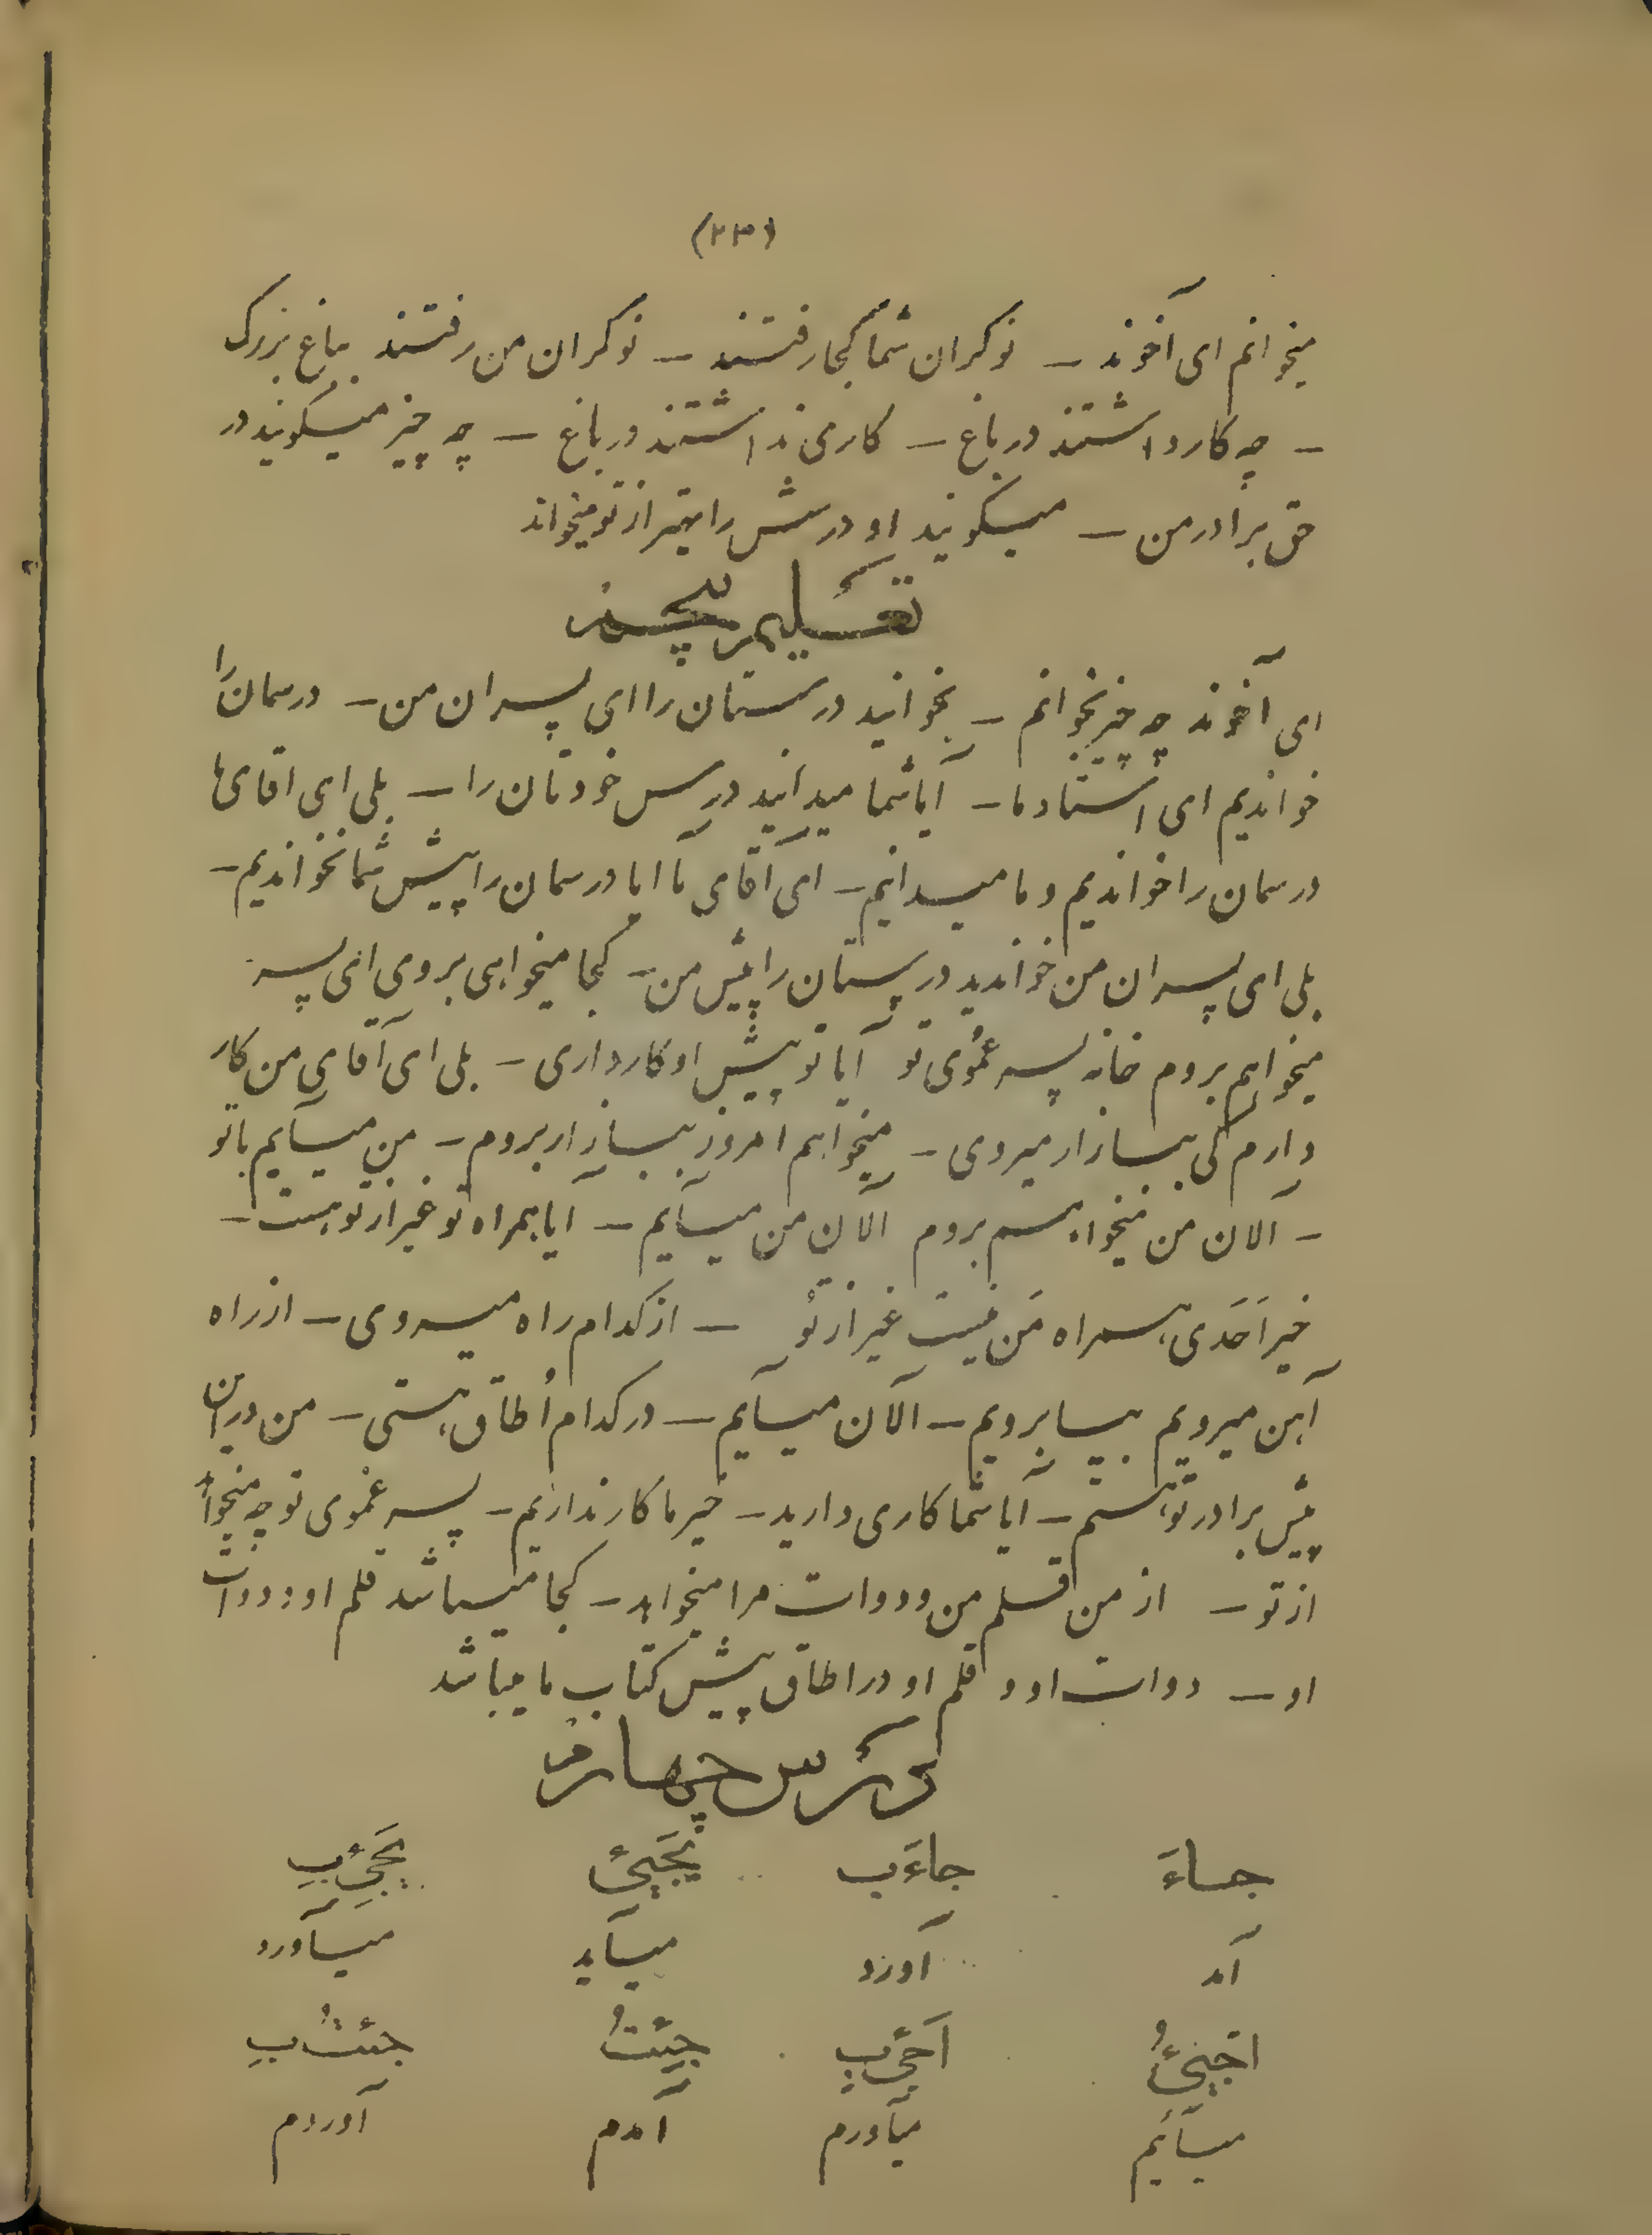 (۲۳)
میخوانم ای آخوند – نوکران شما کجا رفتند – نوکران من رفتند بباغ بزرگ
– چه کار داشتند در باغ – کاری نداشتند در باغ – چه چیز میگویند در
حق برادر من – میگویند او درسش را بهتر از تو میخواند
تعلیم پنجم
ای آخوند چه چیز بخوانم – بخوانید درستان را ای پسران من – درسمان را
خواندیم ای استاد ما – آیا شما میدانید درس خودتان را – بلی ای اقای ما
درسمان را خواندیم و ما میدانیم – ای آقای ما ایا درسمان را پیش شما نخواندیم –
بلی ای پسران من خواندید درستان را پیش من – کجا میخواهی بروی ای پسر
میخواهم بروم خانه پسر عموی تو آیا تو پیش او کار داری – بلی ای آقای من کار
دارم کی ببازار میروی – میخواهم امروز ببازار بروم – من میآیم با تو
– آلان من میخواهم بروم آلان من میآیم – ایا همراه تو غیر از تو هست –
خیر اَحَدی همراه مَن نیست غیر از تو – از کدام راه میروی – از راه
آهن میرویم بیا برویم – آلان میآیم – در کدام اُطاق هستی – من در این
پیش برادر تو هستم – آیا شما کاری دارید – خیر ما کار نداریم – پسر عَموی تو چه میخواهد
از تو – از من قلم من و دوات مرا میخواهد – کجا میباشد قلم او و دوات
او – دوات او و قلم او در اطاق پیش کتاب ما میباشد
درس چهارم
جاءَ جاءَ ب یَجیئُ یَجیُٔ بِ
آمد آورد میآید میآورد
اجیئُ اَجیُٔ بِ جِئتُ جئتُ بِ
میآیم میآورم آمدم آوردم